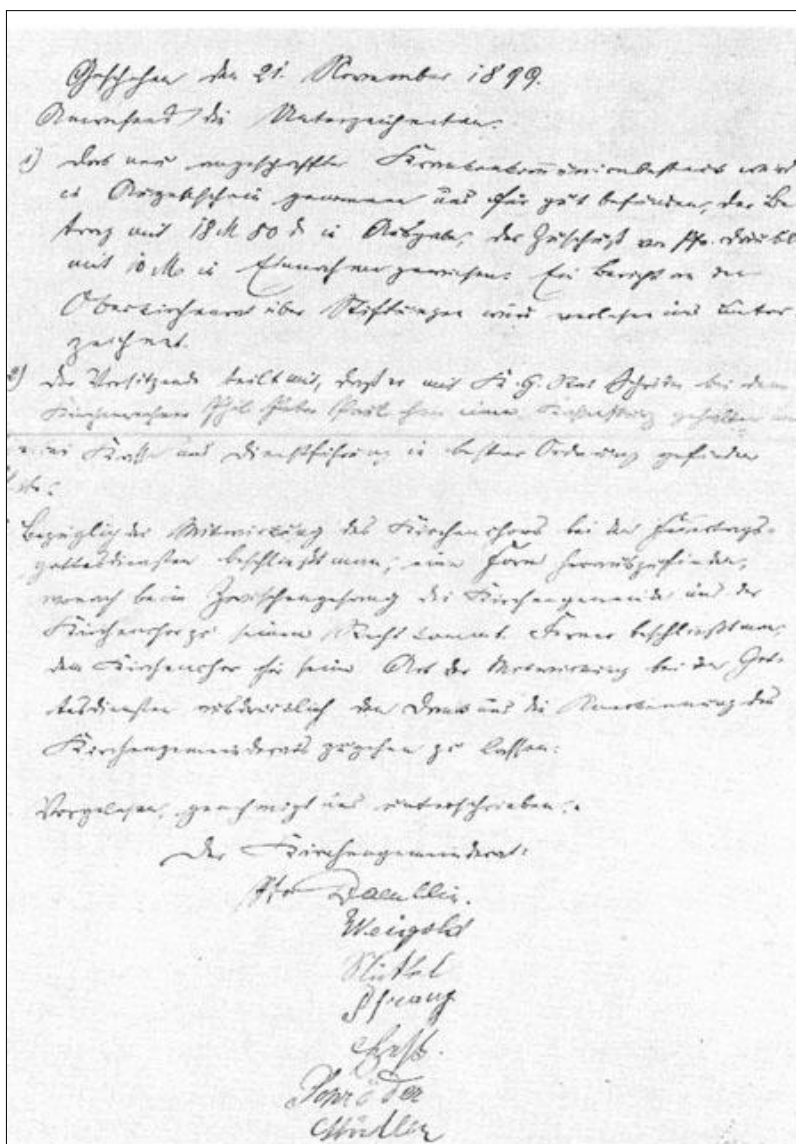 Geschehen den 21. November 1899.
Anwesend die Unterzeichneten.
1) Das neu angeschaffte Krankenkommunionbesteck wird
in Augenschein genommen und für gut befunden, der Be
trag mit 18 M 80 d in Ausgabe, der Zuschuß von Pfr. Däublin
mit 10 M. in Einnahme gewiesen. Ein Bericht an den
Oberkirchenrat über Stiftungen wird verlesen und unter
zeichnet.
2) Der Vorsitzende teilt mit, daß er mit K. G. Rat Schröder bei dem
Kirchenrechner Phil. Peter einen Kassensturz gehalten und
Kasse und Dienstführung in bester Ordnung gefunden
habe.
Bezüglich der Mitwirkung des Kirchenchors bei den Feiertags-
gottesdiensten beschließt man, eine Form herauszufinden,
wonach beim Zwischengesang die Kirchengemeinde und der
Kirchenchor zu seinem Recht kommt. Ferner beschließt man,
dem Kirchenchor für seine Art der Mitwirkung bei den Got-
tesdiensten ausdrücklich den Dank und die Anerkennung des
Kirchengemeinderats zugehen zu lassen.
Vorgelesen, genehmigt und unterschrieben.
Der Kirchengemeinderat:
Pfr Daeublin.
Weigold
Pfrang
Schröder
Müller